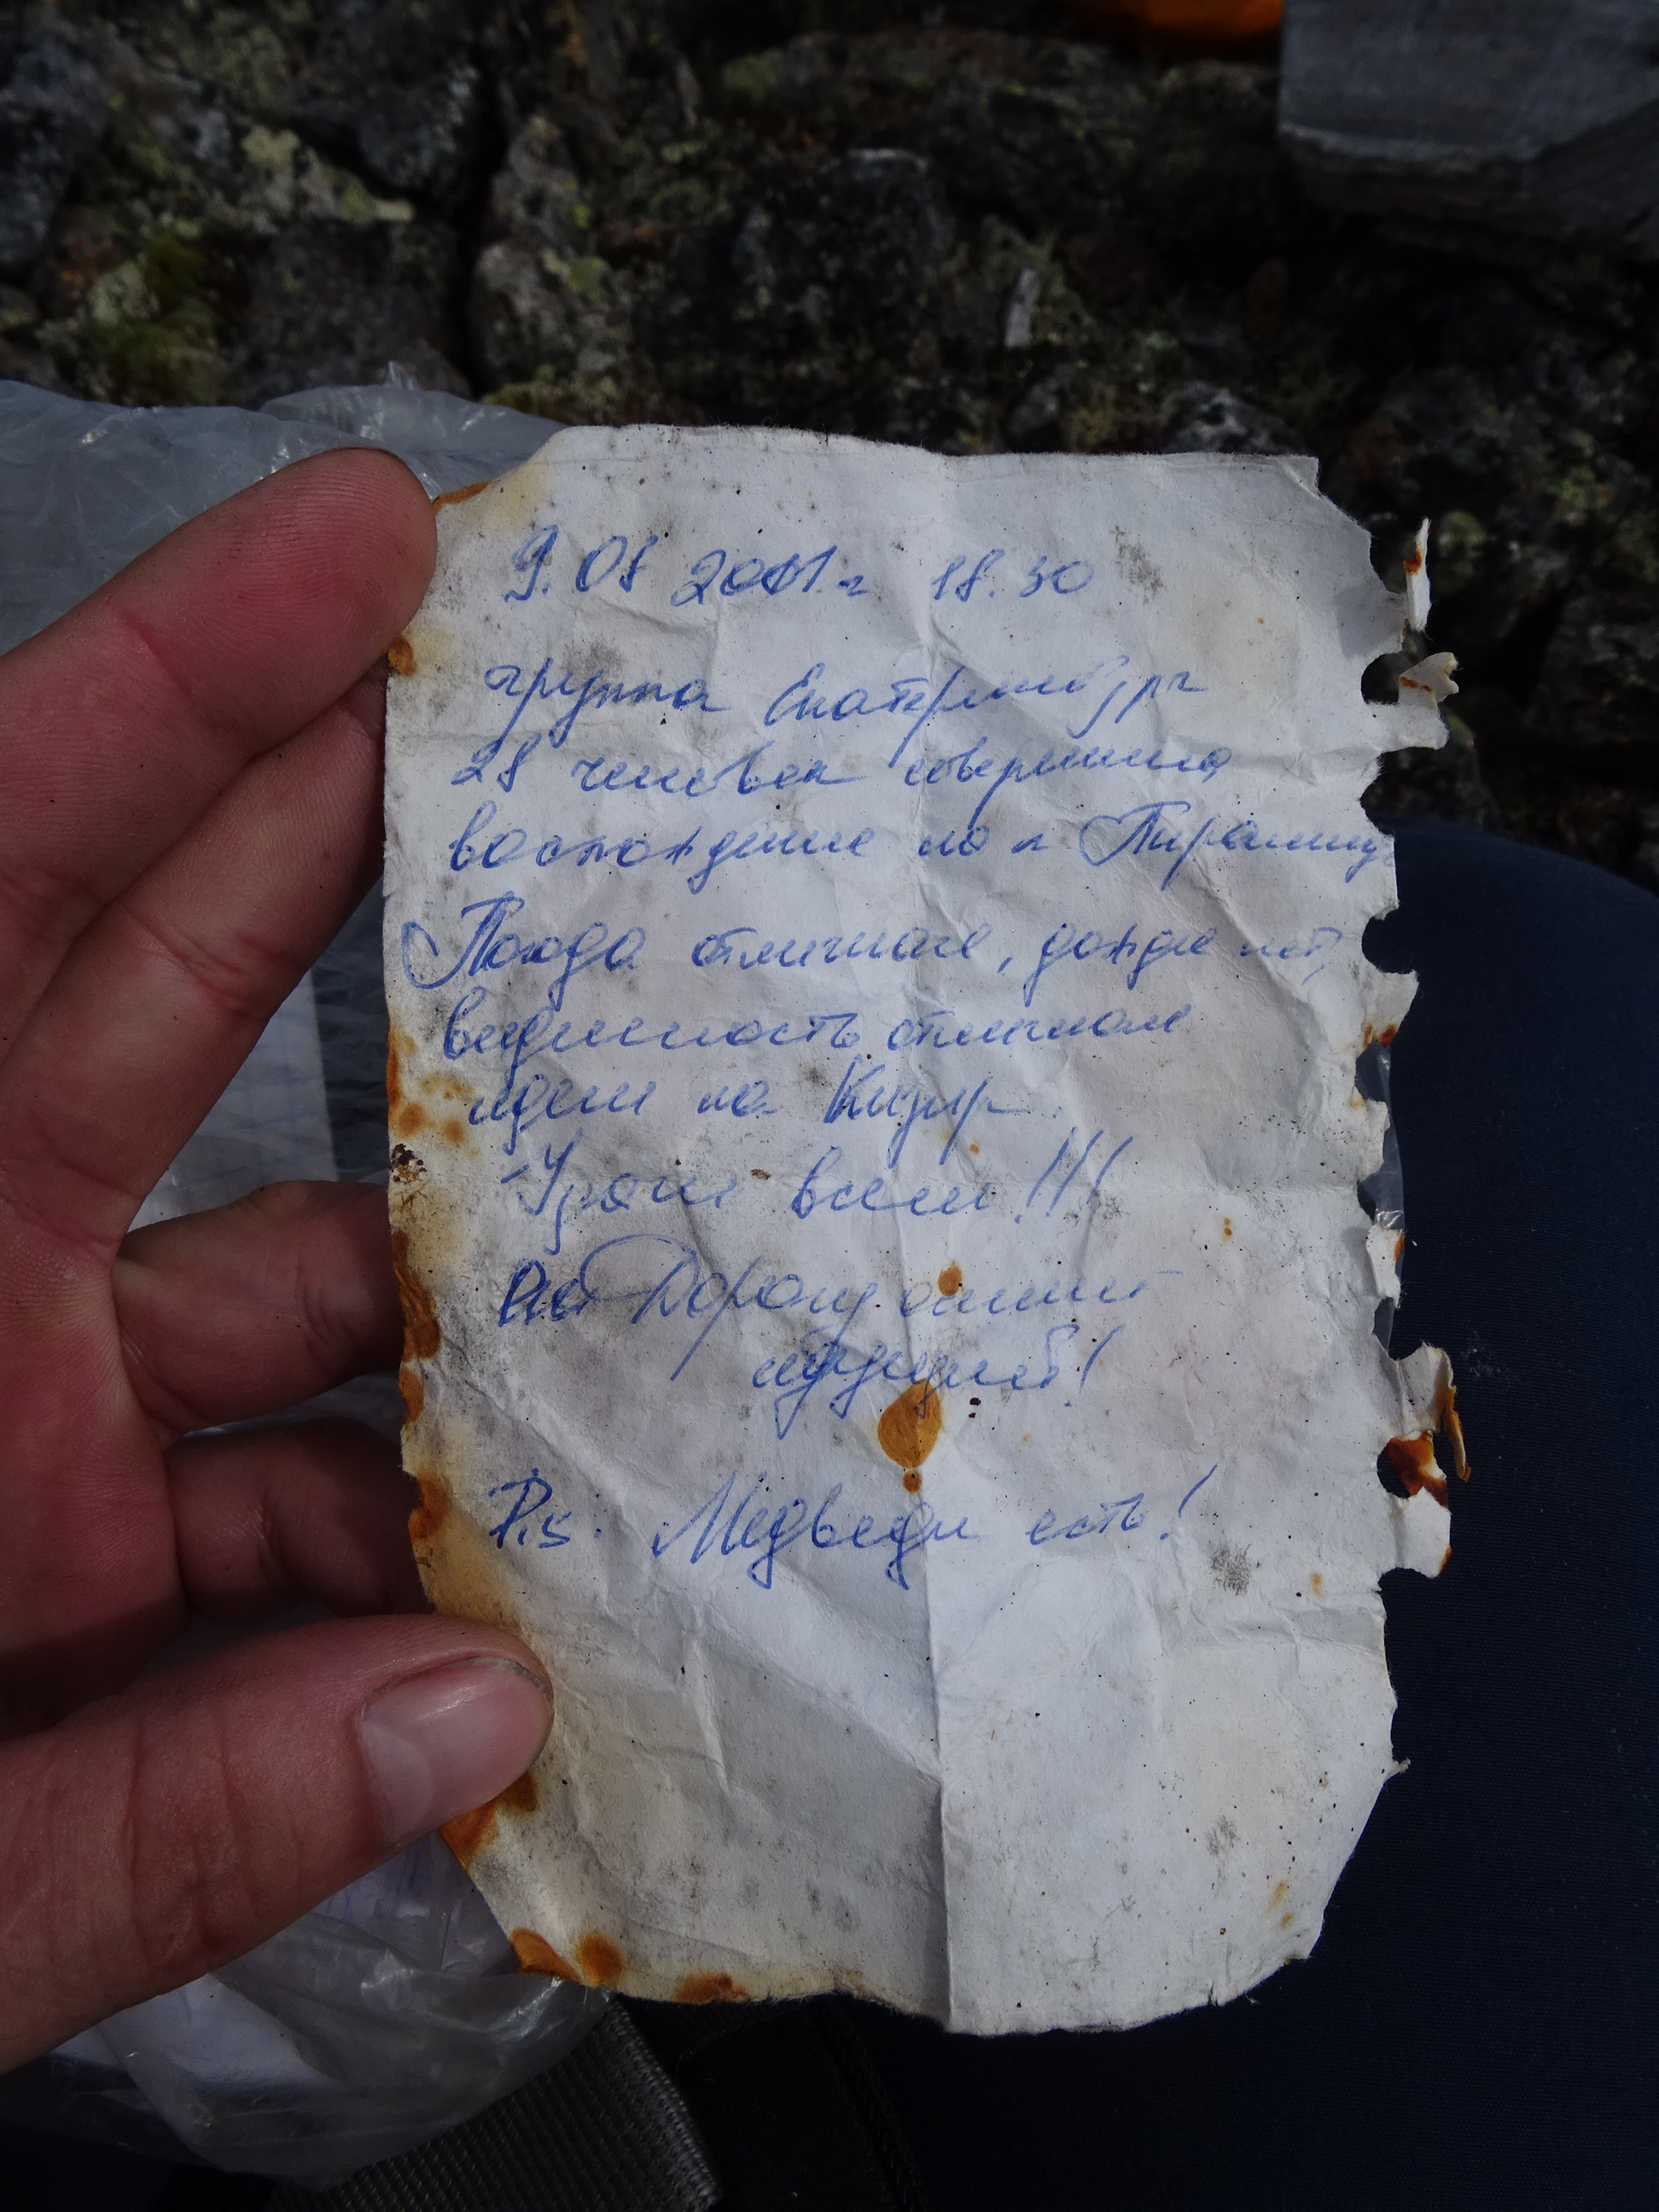 9.08 2001г 18.30
группа Екатеринбург
28 человек совершила
восхождение на п Пирамида
Погода отличная, дождя нет,
видимость отличная
идем на Кизир.
Удачи всем!!!
Дорогу осилит
идущий!
P.S. Медведи есть!